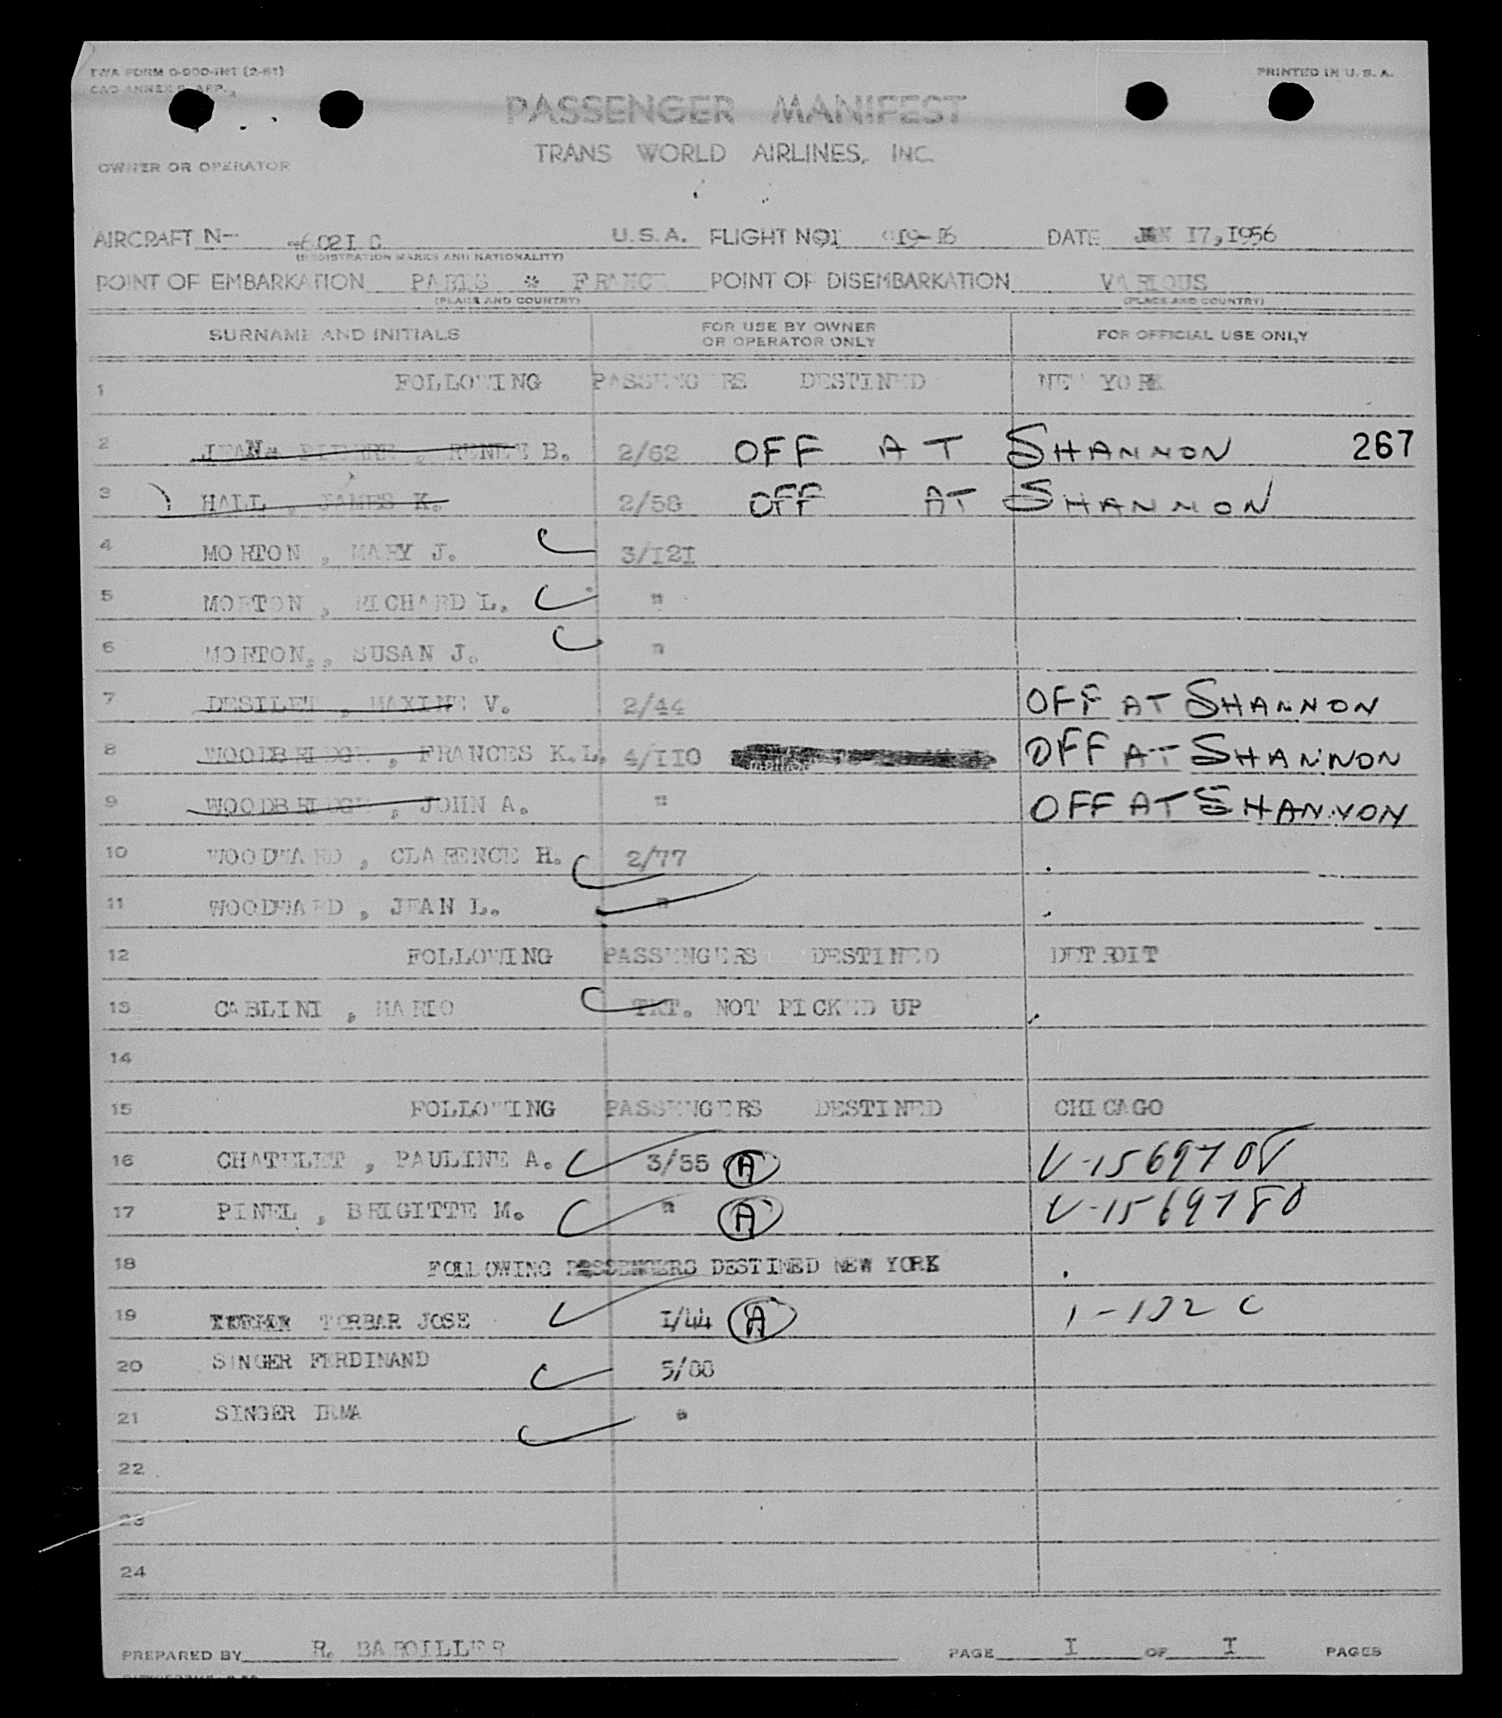 TWA FORM O-900-INT (2-51) PRINTED IN U. S. A.
PASSENGER MANIFEST
TRANS WORLD AIRLINES, INC.
OWNER OR OPERATOR
AIRCRAFT N- U.S.A. FLIGHT NO DATE JAN 17, 1956
(REGISTRATION MARKS AND NATIONALITY)
POINT OF EMBARKATION PARIS * FRANCE POINT OF DISEMBARKATION VARIOUS
(PLACE AND COUNTRY) (PLACE AND COUNTRY)
SURNAME AND INITIALS FOR USE BY OWNER OR OPERATOR ONLY FOR OFFICIAL USE ONLY
1 FOLLOWING PASSENGERS DESTINED NEW YORK
2 PIERRE , RENEE B. 2/62 OFF AT SHANNON 267
3 HALL , JAMES K. 2/58 OFF AT SHANNON
4 MORTON , MARY J. 3/121
5 MORTON , RICHARD L. "
6 MORTON , SUSAN J. "
7 DESILET , MAXINE V. 2/44 OFF AT SHANNON
8 WOODBRIDGE , FRANCES K.L. 4/110 OFF AT SHANNON
9 WOODBRIDGE , JOHN A. " OFF AT SHANNON
10 WOODWARD , CLARENCE H. 2/77
11 WOODWARD , JEAN L. "
12 FOLLOWING PASSENGERS DESTINED DETROIT
13 CABLINI , MARIO TKT. NOT PICKED UP
14
15 FOLLOWING PASSENGERS DESTINED CHICAGO
16 CHATELET , PAULINE A. 3/55 A
17 PINEL , BRIGITTE M. " A V-1569780
18 FOLLOWING PASSENGERS DESTINED NEW YORK
19 TORBAR JOSE 1/44 A
20 SINGER FERDINAND 5/88
21 SINGER IRMA "
22
23
24
PREPARED BY R. BAROILLER PAGE I OF I PAGES